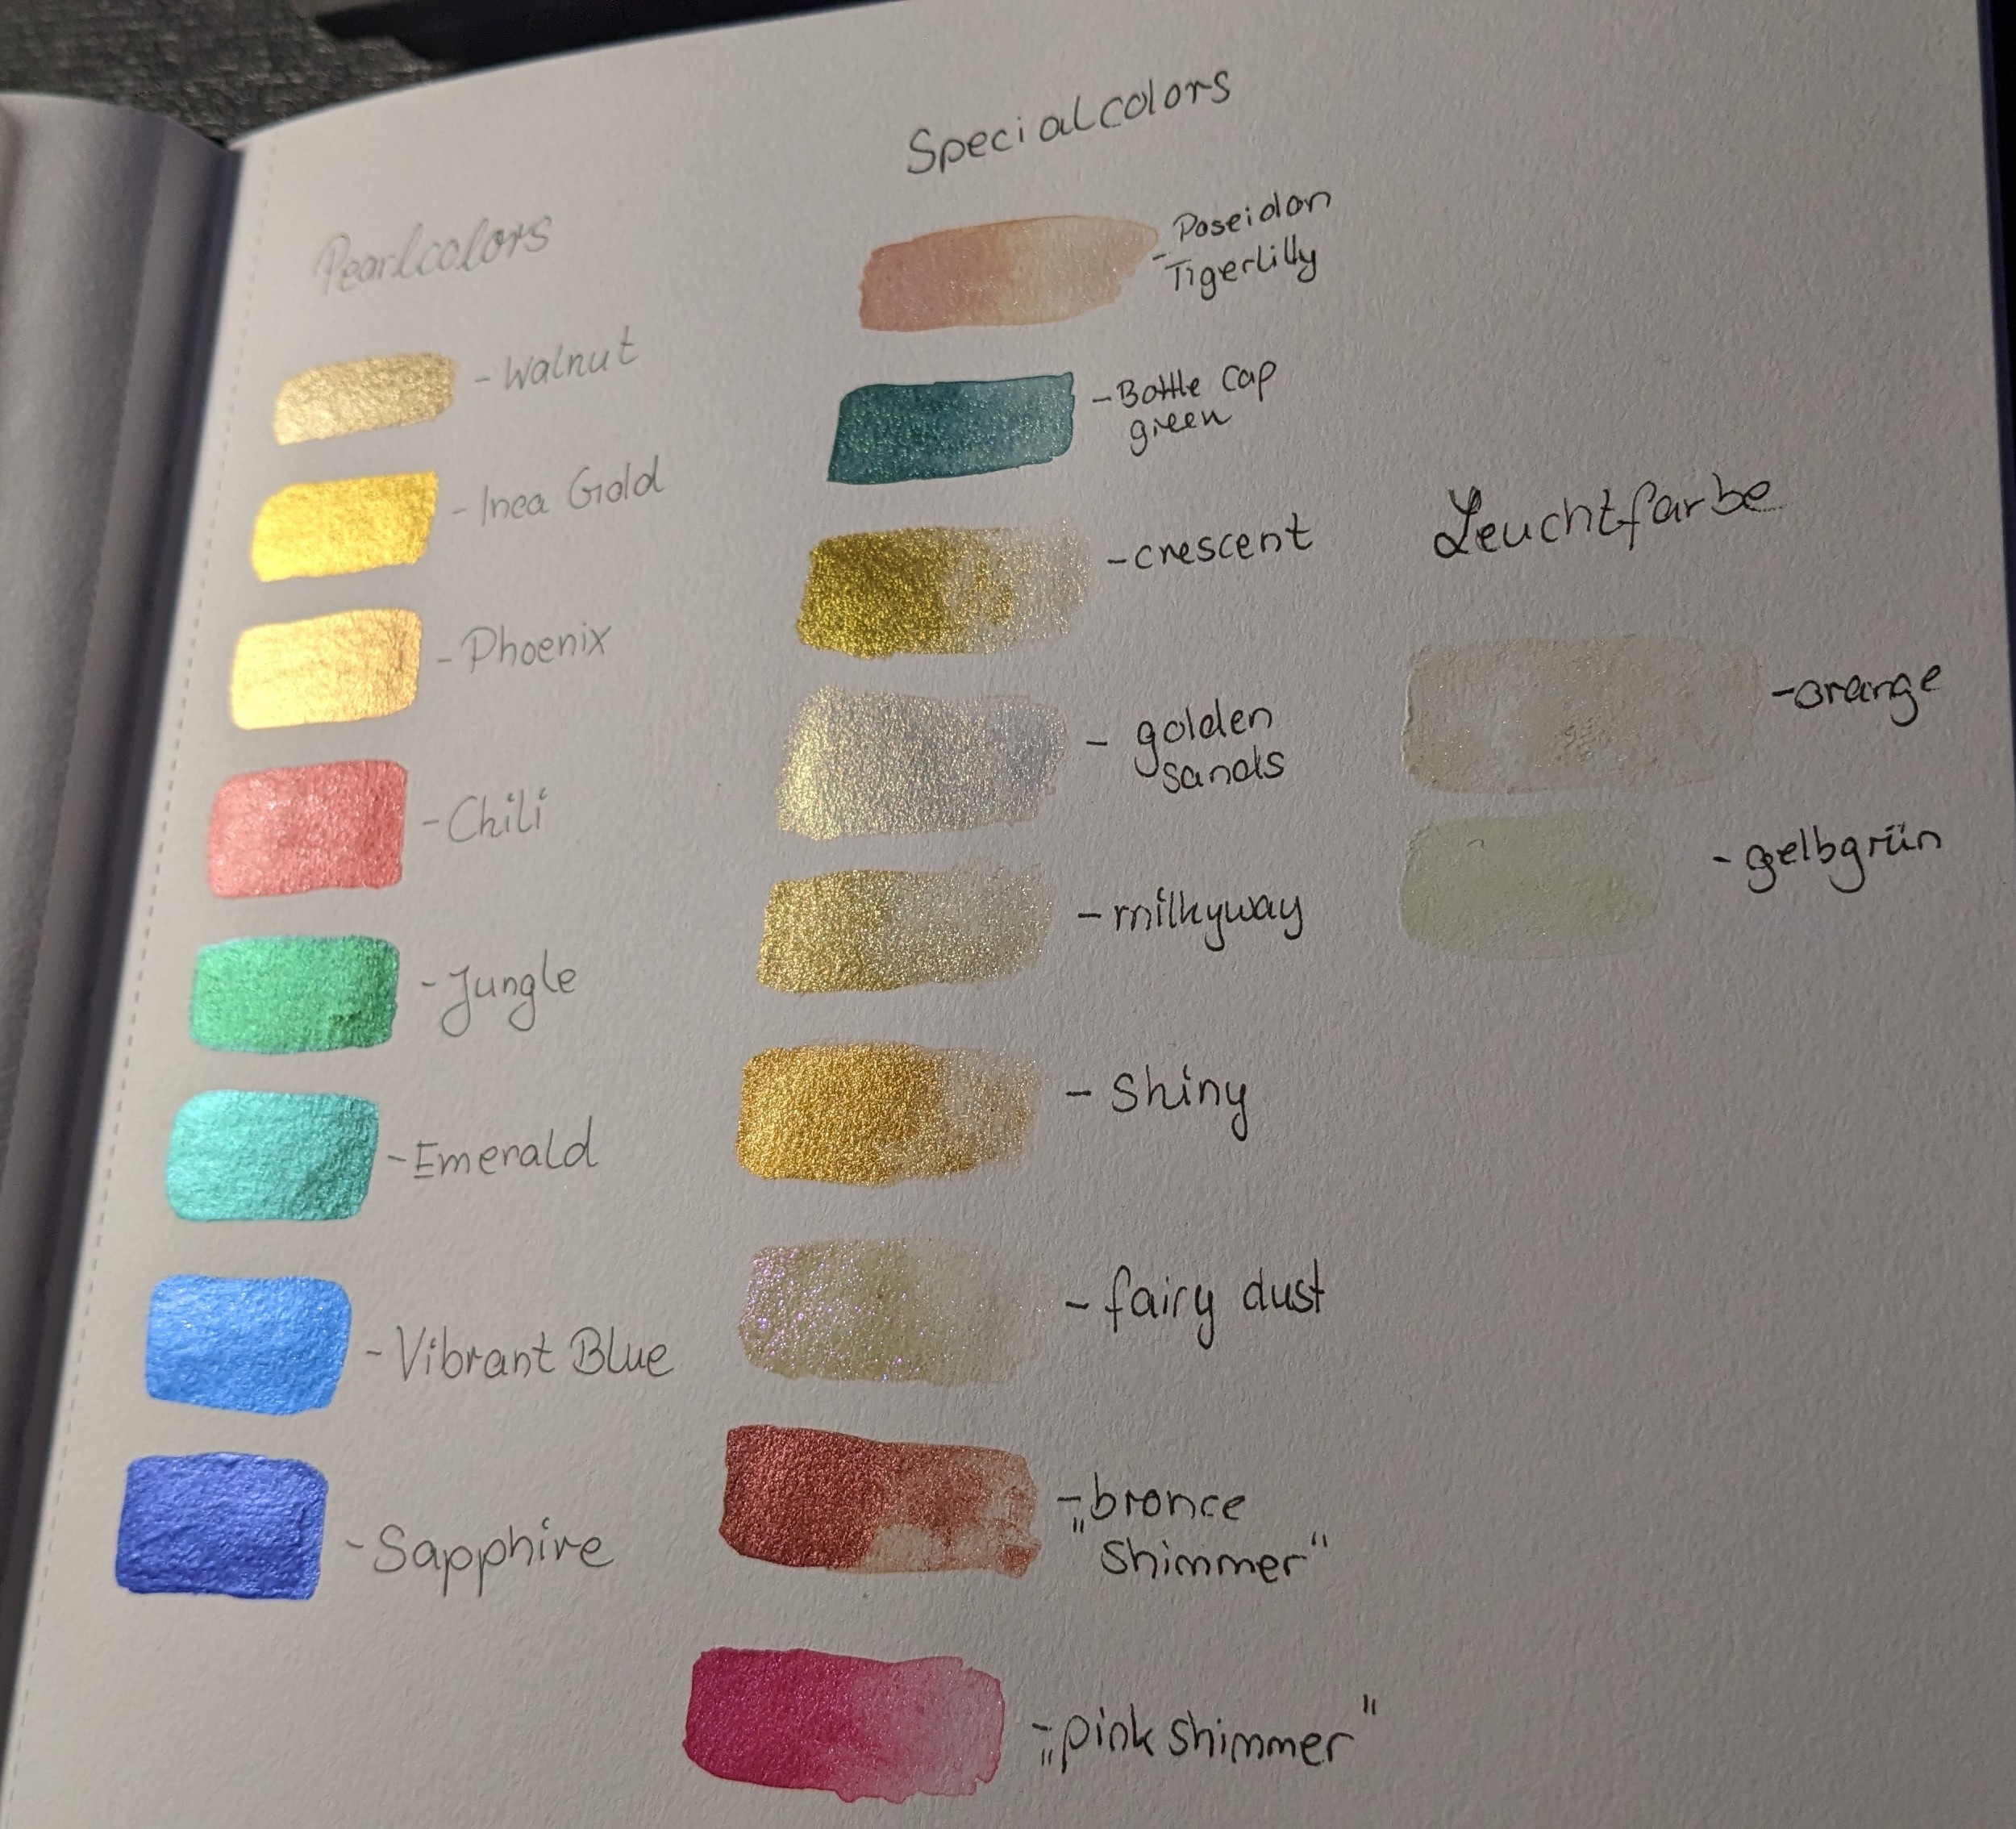 Pearlcolors
- Walnut
- Inca Gold
- Phoenix
- Chili
- Jungle
- Emerald
- Vibrant Blue
- Sapphire
Specialcolors
- Poseidon
Tigerlilly
- Bottle cap
green
- crescent
- golden
sands
- milkyway
- Shiny
- fairy dust
- „bronce
shimmer"
- „pink shimmer"
Leuchtfarbe
- orange
- gelbgrün